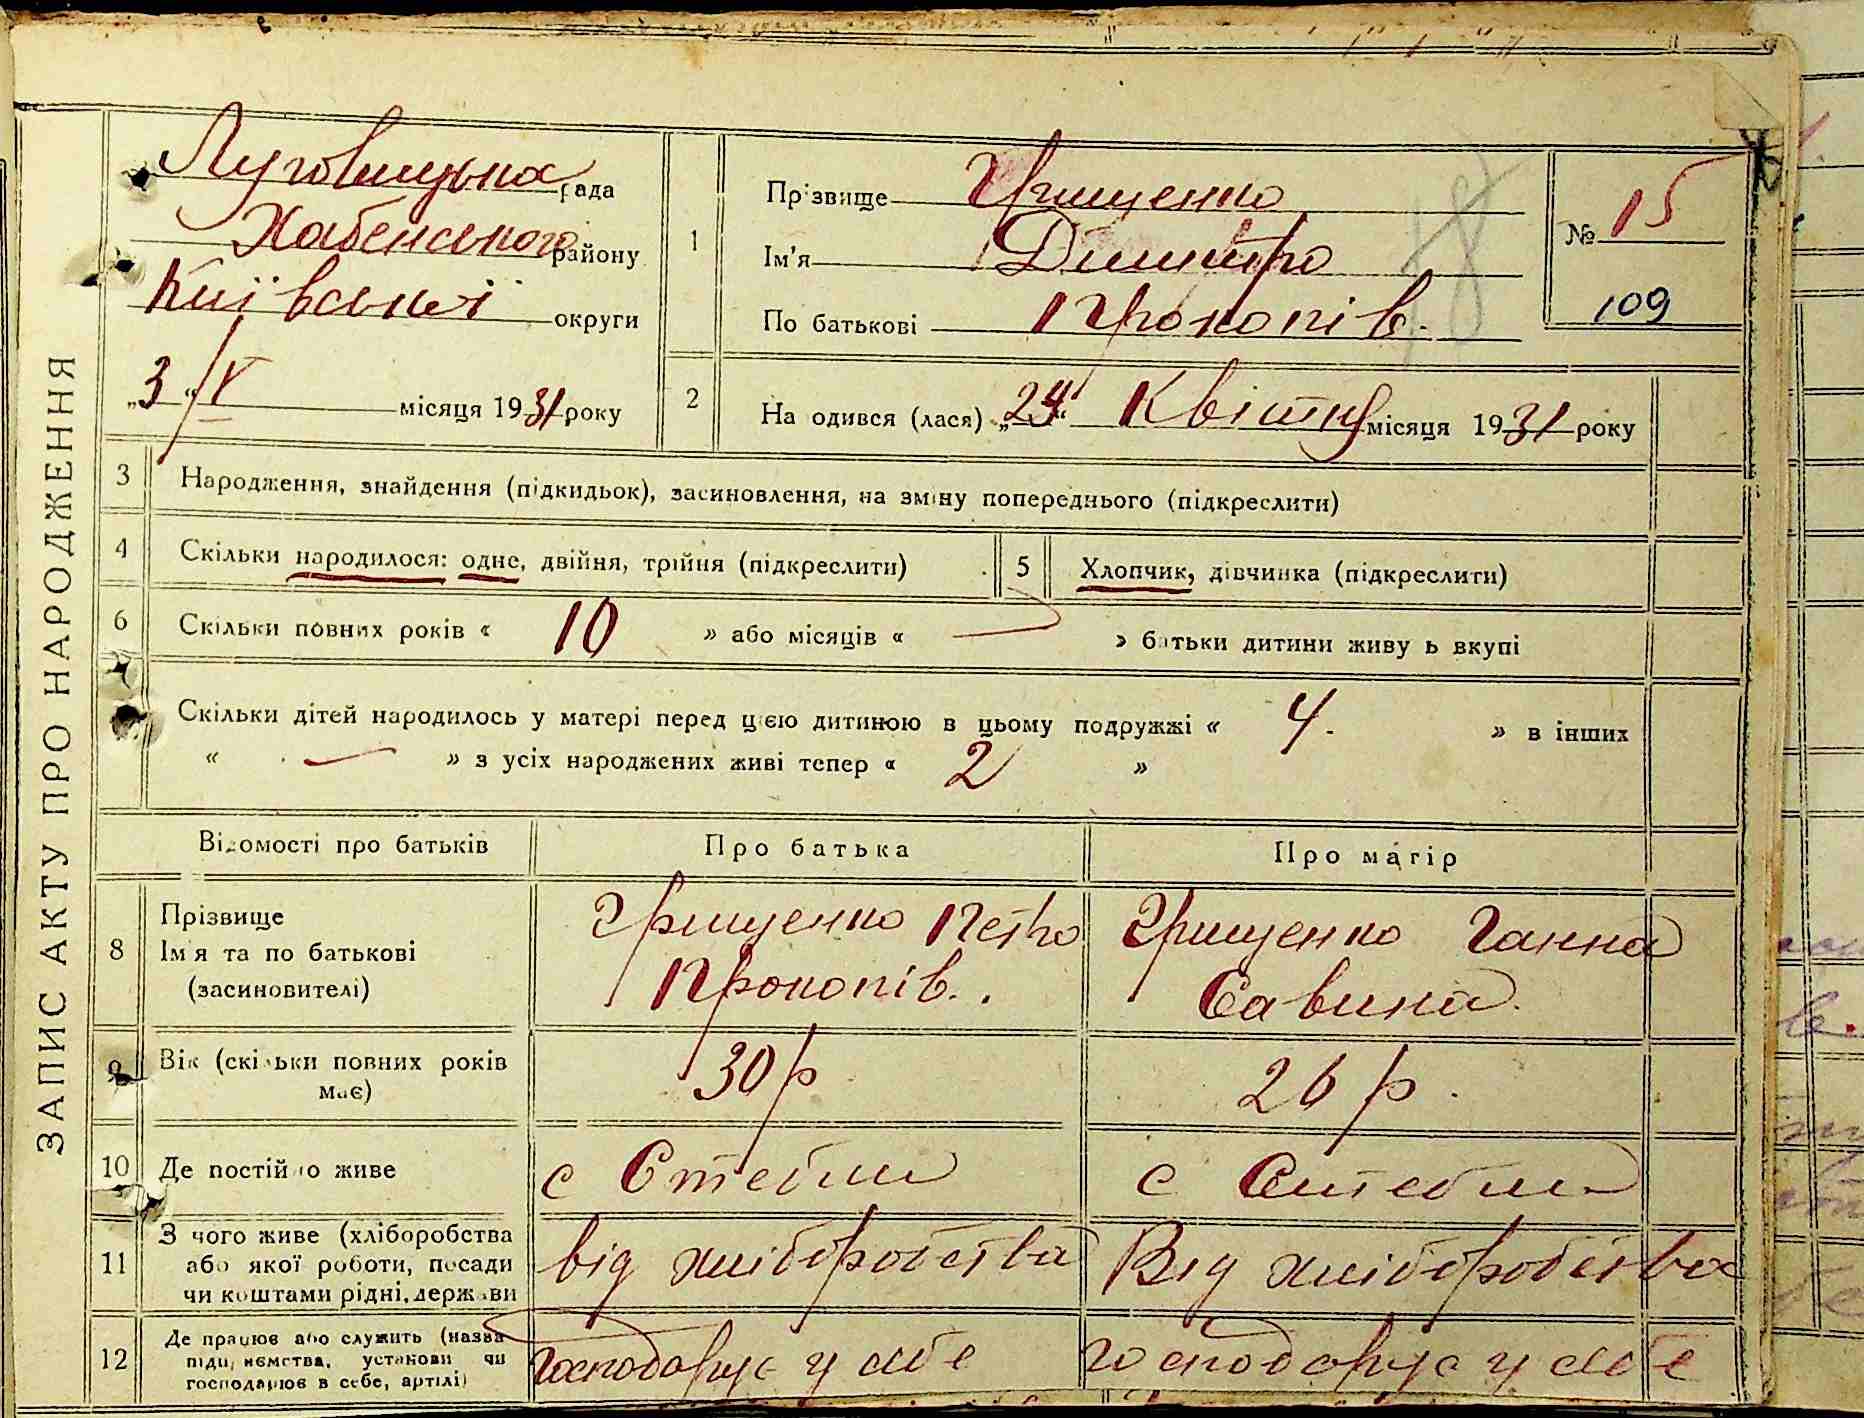 ЗАПИС АКТУ ПРО НАРОДЖЕННЯ
Луговицька рада
Хабенського району
Київської округи
„3“ V місяця 1931 року
1
Прізвище Грищенко
Ім'я Дмитро
По батькові Прокопів.
№ 15
109
18
2
На одився (лася) „24“ Квітня місяця 1931 року
3 Народження, знайдення (підкидьок), засиновлення, на зміну попереднього (підкреслити)
4 Скільки народилося: одне, двійня, трійня (підкреслити)
5 Хлопчик, дівчинка (підкреслити)
6 Скільки повних років « 10 » або місяців « — » батьки дитини живу ь вкупі
7 Скільки дітей народилось у матері перед цією дитиною в цьому подружжі « 4. » в інших
« — » з усіх народжених живі тепер « 2 »
Відомості про батьків Про батька Про матір
8 Прізвище
Ім'я та по батькові
(засиновителі)
Грищенко Петро
Прокопів.
Грищенко Ганна
Савина.
9 Вік (скільки повних років
має)
30 р
26 р.
10 Де постійно живе
с Стебли
с Стебли
11 З чого живе (хліборобства
або якої роботи, посади
чи коштами рідні, держави
від хліборобства
Від хліборобства
12 Де працює або служить (назва
підприємства, установи чи
господарює в себе, артілі)
господарує у себе
господарує у себе